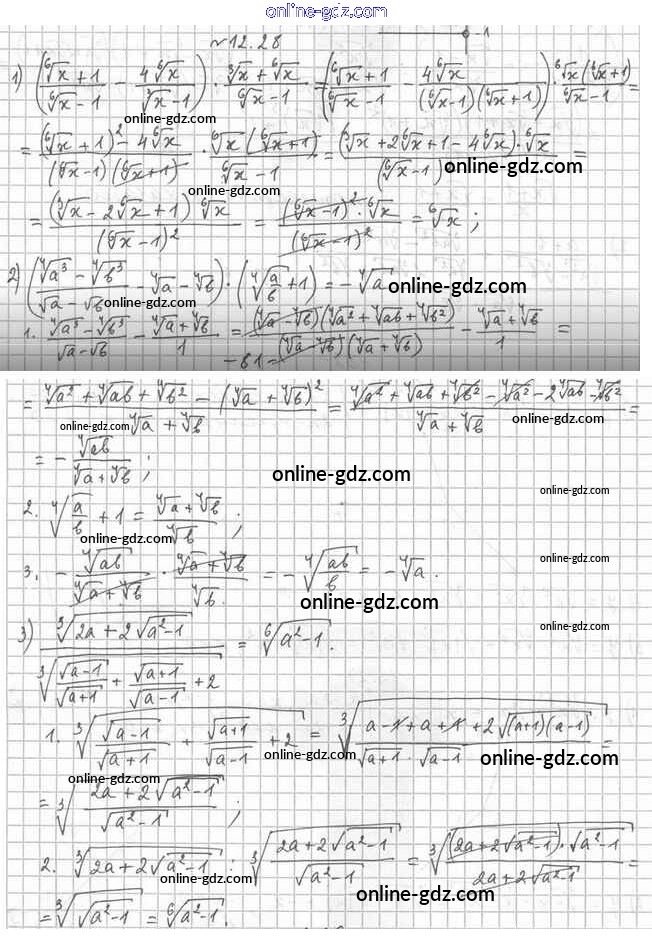 online-gdz.com
№12.28
1
1) ((⁶√x + 1)/(⁶√x - 1) - 4⁶√x/(³√x - 1)) · (³√x + ⁶√x)/(⁶√x - 1) = ((⁶√x + 1)/(⁶√x - 1) - 4⁶√x/((⁶√x - 1)(⁶√x + 1))) · ⁶√x(⁶√x + 1)/(⁶√x - 1) =
online-gdz.com
= ((⁶√x + 1)² - 4⁶√x)/((⁶√x - 1)(⁶√x + 1)) · ⁶√x(⁶√x + 1)/(⁶√x - 1) = (³√x + 2⁶√x + 1 - 4⁶√x) · ⁶√x/(⁶√x - 1) =
online-gdz.com
online-gdz.com
= (³√x - 2⁶√x + 1) ⁶√x/(⁶√x - 1)² = (⁶√x - 1)² · ⁶√x/(⁶√x - 1)² = ⁶√x ;
2) ((⁴√a³ - ⁴√b³)/(√a - √b) - ⁴√a - ⁴√b) · (⁴√(a/b) + 1) = - ⁴√a
online-gdz.com
online-gdz.com
1. (⁴√a³ - ⁴√b³)/(√a - √b) - (⁴√a + ⁴√b)/1 = (⁴√a - ⁴√b)(⁴√a² + ⁴√ab + ⁴√b²)/((⁴√a - ⁴√b)(⁴√a + ⁴√b)) - (⁴√a + ⁴√b)/1 =
- 61 -
= (⁴√a² + ⁴√ab + ⁴√b² - (⁴√a + ⁴√b)²)/(⁴√a + ⁴√b) = (⁴√a² + ⁴√ab + ⁴√b² - ⁴√a² - 2⁴√ab - ⁴√b²)/(⁴√a + ⁴√b) =
online-gdz.com
online-gdz.com
= - ⁴√ab/(⁴√a + ⁴√b) ;
online-gdz.com
online-gdz.com
2. ⁴√(a/b) + 1 = (⁴√a + ⁴√b)/⁴√b ;
online-gdz.com
online-gdz.com
3. - ⁴√ab/(⁴√a + ⁴√b) · (⁴√a + ⁴√b)/⁴√b = - ⁴√(ab/b) = - ⁴√a .
online-gdz.com
online-gdz.com
3) ³√(2a + 2√(a² - 1))/³√(√(a - 1)/√(a + 1) + √(a + 1)/√(a - 1) + 2) = ⁶√(a² - 1) .
1. ³√(√(a - 1)/√(a + 1) + √(a + 1)/√(a - 1) + 2) = ³√((a - 1 + a + 1 + 2√((a + 1)(a - 1)))/(√(a + 1) · √(a - 1))) =
online-gdz.com
online-gdz.com
online-gdz.com
= ³√((2a + 2√(a² - 1))/√(a² - 1)) ;
2. ³√(2a + 2√(a² - 1)) : ³√((2a + 2√(a² - 1))/√(a² - 1)) = ³√((2a + 2√(a² - 1)) · √(a² - 1)/(2a + 2√(a² - 1))) =
online-gdz.com
online-gdz.com
= ³√(√(a² - 1)) = ⁶√(a² - 1) .